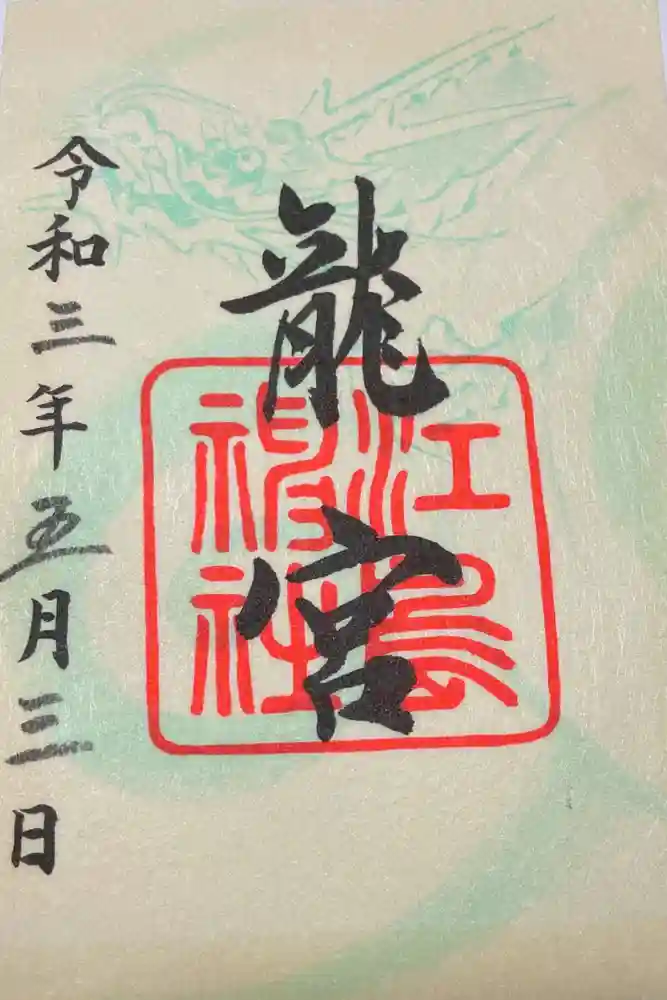 龍宮
江島
神社
令和三年五月三日